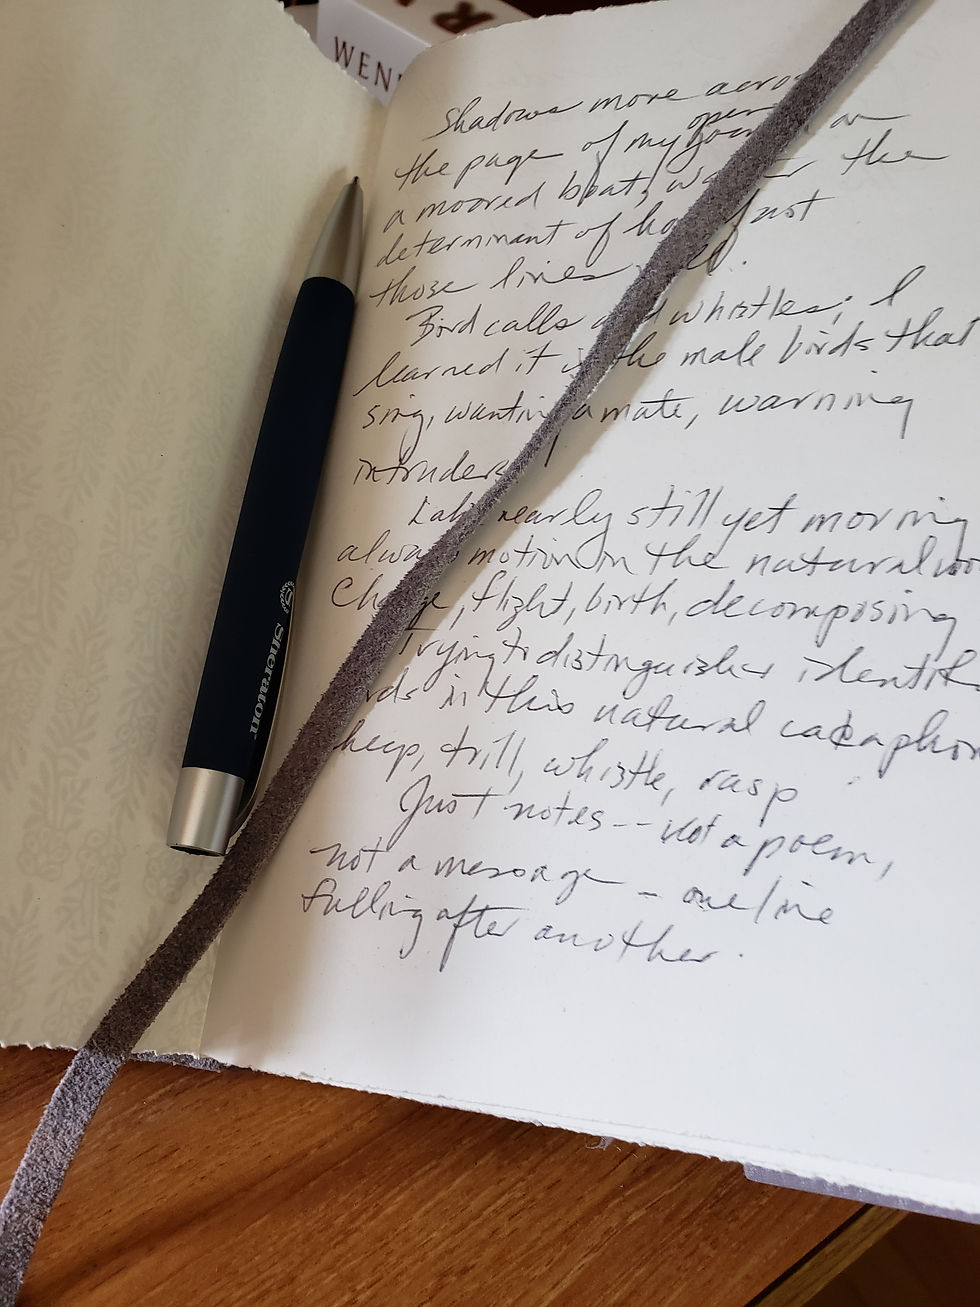 WEN
R
Shadows move acro
open
the page of my jour on
a moored boat, wa r the
determinant of ho fast
those lines
Bird calls a d whistles; I
learned it i the male birds that
sing, wantin a mate, warning
intruders
Lak nearly still yet moving
alwa motion in the natural wo
Ch ge, flight, birth, decomposing
Trying to distinguish & identif
rds in this natural cacaphon
heep, trill, whistle, rasp
Just notes -- not a poem,
not a message - one line
falling after another.
Sheraton